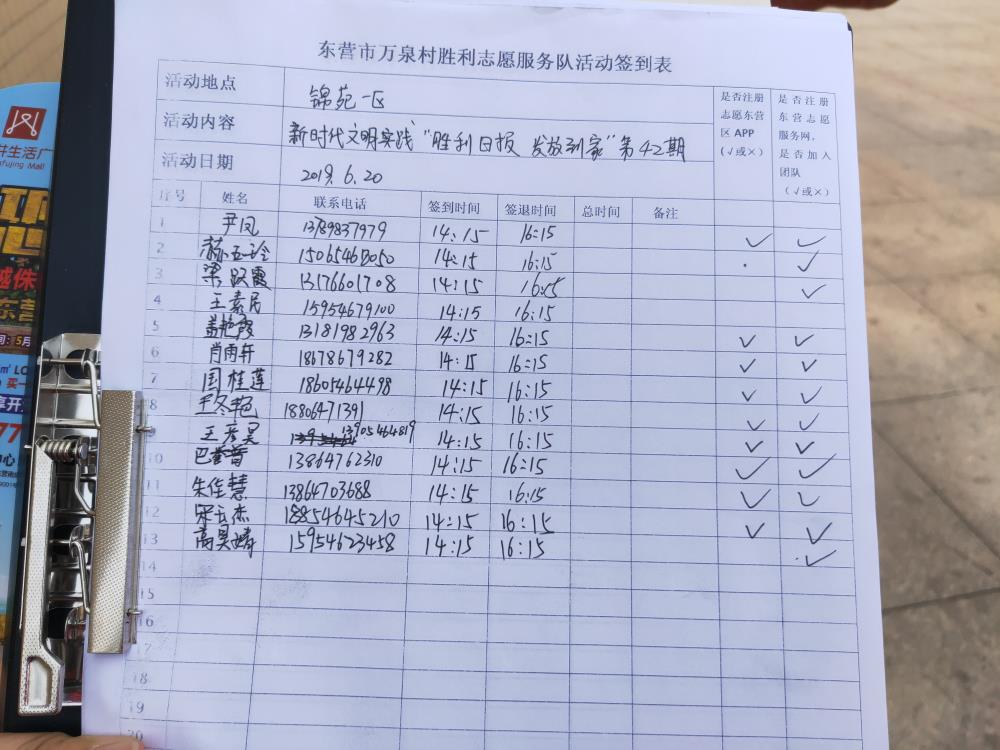 东营市万泉村胜利志愿服务队活动签到表
活动地点 锦苑一区
活动内容 新时代文明实践“胜利日报 发放到家”第42期
活动日期 2019.6.20
是否注册志愿东营区APP(√或×)
是否注册东营志愿服务网,是否加入团队(√或×)
序号 姓名 联系电话 签到时间 签退时间 总时间 备注
1 尹凤 13789837979 14:15 16:15 √ √
2 14:15 16:15 √
3 梁跃霞 13176601708 14:15 16:15 √
4 王素民 15954679100 14:15 16:15
5 盖艳霞 13181982963 14:15 16:15 √ √
6 肖雨轩 18678679282 14:15 16:15 √ √
7 国桂莲 18605464498 14:15 16:15 √ √
8 王冬艳 18806471391 14:15 16:15 √ √
9 王彦昊 13905464819 14:15 16:15 √ √
10 13864762310 14:15 16:15 √ √
11 朱佳慧 13864703688 14:15 16:15 √ √
12 宋云杰 18854645210 14:15 16:15 √ √
13 高昊 15954623458 14:15 16:15 √
14
15
16
17
18
19
20
井生活广
fujing Mall
越侏
东营
间:5月
m² LO
买一
享开
77
心